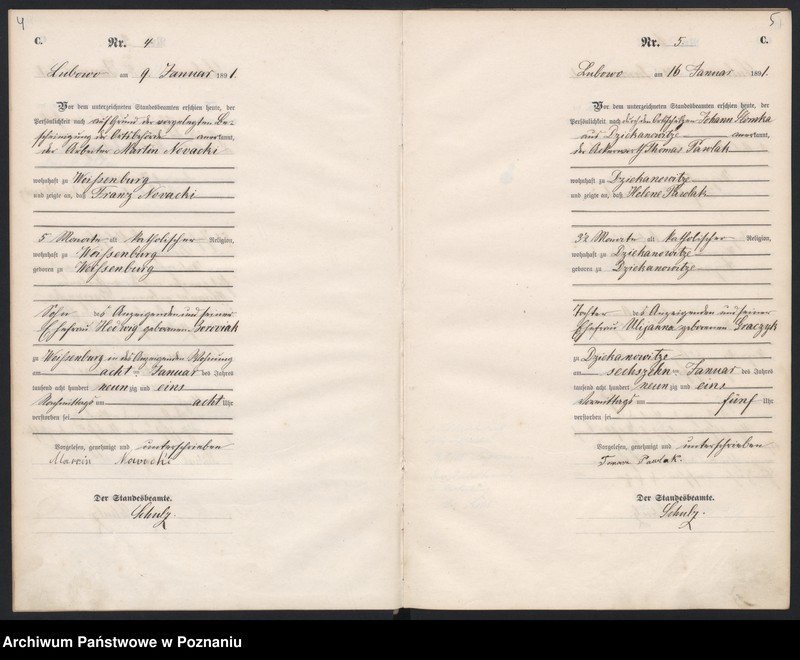 4
C.
Nr. 4
Lubowo am 9. Januar 1891.
Vor dem unterzeichneten Standesbeamten erschien heute, der
Persönlichkeit nach auf Grund der vorgelegten Be-
scheinigung der Ortsbehörde anerkannt,
der Arbeiter Martin Novacki
wohnhaft zu Weissenburg
und zeigte an, daß Franz Novacki
5 Monate alt katholischer Religion,
wohnhaft zu Weissenburg
geboren zu Weissenburg
Sohn des Anzeigenden und seiner
Ehefrau Hedwig geborenen Boroviak
zu Weissenburg in des Anzeigenden Wohnung
am acht ten Januar des Jahres
tausend acht hundert neun zig und eins
Nachmittags um acht Uhr
verstorben sei
Vorgelesen, genehmigt und unterschrieben
Marcin Nowacki
Der Standesbeamte.
Schulz.
5
Nr. 5.
C.
Lubowo am 16 Januar 1891.
Vor dem unterzeichneten Standesbeamten erschien heute, der
Persönlichkeit nach durch den Ortsschulzen Johann Slomka
aus Dziekanowitze anerkannt,
der Ackerwirth Thomas Pawlak
wohnhaft zu Dziekanowitze
und zeigte an, daß Helene Pawlak
3½ Monate alt katholischer Religion,
wohnhaft zu Dziekanowitze
geboren zu Dziekanowitze
Tochter des Anzeigenden und seiner
Ehefrau Ulijanna geborenen Graczyk
zu Dziekanowitze
am sechszehn ten Januar des Jahres
tausend acht hundert neun zig und eins
Vormittags um fünf Uhr
verstorben sei
Vorgelesen, genehmigt und unterschrieben
Pawlak.
Der Standesbeamte.
Schulz.
Archiwum Państwowe w Poznaniu